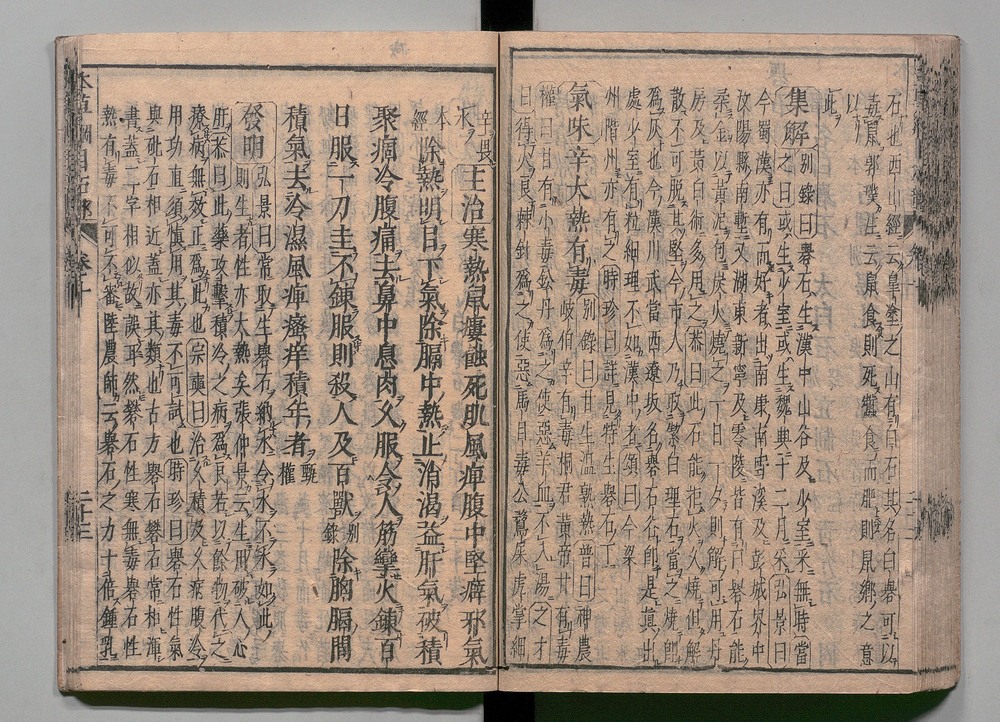 石也西山經云皐塗之山有白石其名曰礜可以
毒鼠郭璞注云鼠食則死蠶食而肥則鼠鄉之意
以此
集解 別錄曰礜石生漢中山谷及少室采無時當
之曰或生少室或生魏興十二月采弘景曰
今蜀漢亦有而好者出南康南野溪及彭城界中
汝陽縣南塹又湖東新寧及零陵皆有白礜石能
柔金以黃泥包炭火燒之一日一夕則解可用丹
房及黃白術多用之恭曰此石能拒火久燒但解
散不可脫其堅今市人乃取潔白理石當之燒卽
爲灰也今漢川武當西遼坂名礜石谷卽是真出
處少室有粒細理不如漢中者頌曰今梁
州階州亦有之時珍曰詳見特生礜石下
氣味辛大熱有毒 別錄曰甘生溫熟熱普曰神農
岐伯辛有毒桐君黃帝甘有毒
權曰甘有小毒鉛丹爲之使惡羊血不入湯之才
曰得火良棘針爲之使惡馬目毒公鶩屎虎掌細
本草綱目石部 卷十 二十三
辛畏水 主治寒熱鼠瘻蝕死肌風痺腹中堅癖邪氣
本經 除熱明目下氣除膈中熱止消渴益肝氣破積
聚痼冷腹痛去鼻中息肉久服令人筋攣火鍊百
日服一刀圭不鍊服則殺人及百獸 別錄 除胸膈間
積氣去冷濕風痺瘙痒積年者 甄權
發明 弘景曰常取生礜石納水令水不氷如此
則生者性亦大熱矣張仲景云生用破人心
肝恭曰此藥攻擊積冷之病爲良若以餘物代之
療病無效正爲此也宗奭曰治久積及久病腹冷
用功直須慎用其毒不可試也時珍曰礜石性氣
與砒石相近蓋亦其類也古方礜石礬石常相渾
書蓋二字相似故誤耳然礬石性寒無毒礜石性
熱有毒不可不審陸農師云礜石之力十倍鍾乳